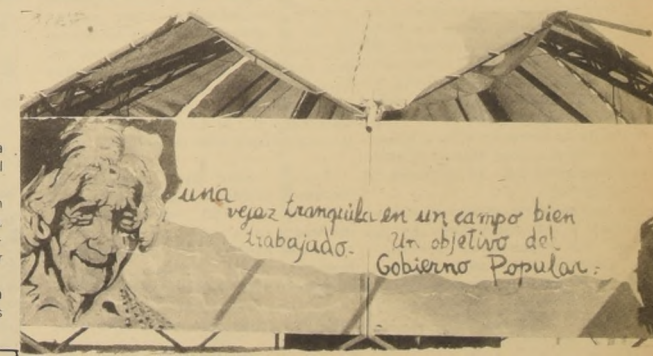 una
vejez tranquila en un campo bien
trabajado. Un objetivo del
Gobierno Popular.